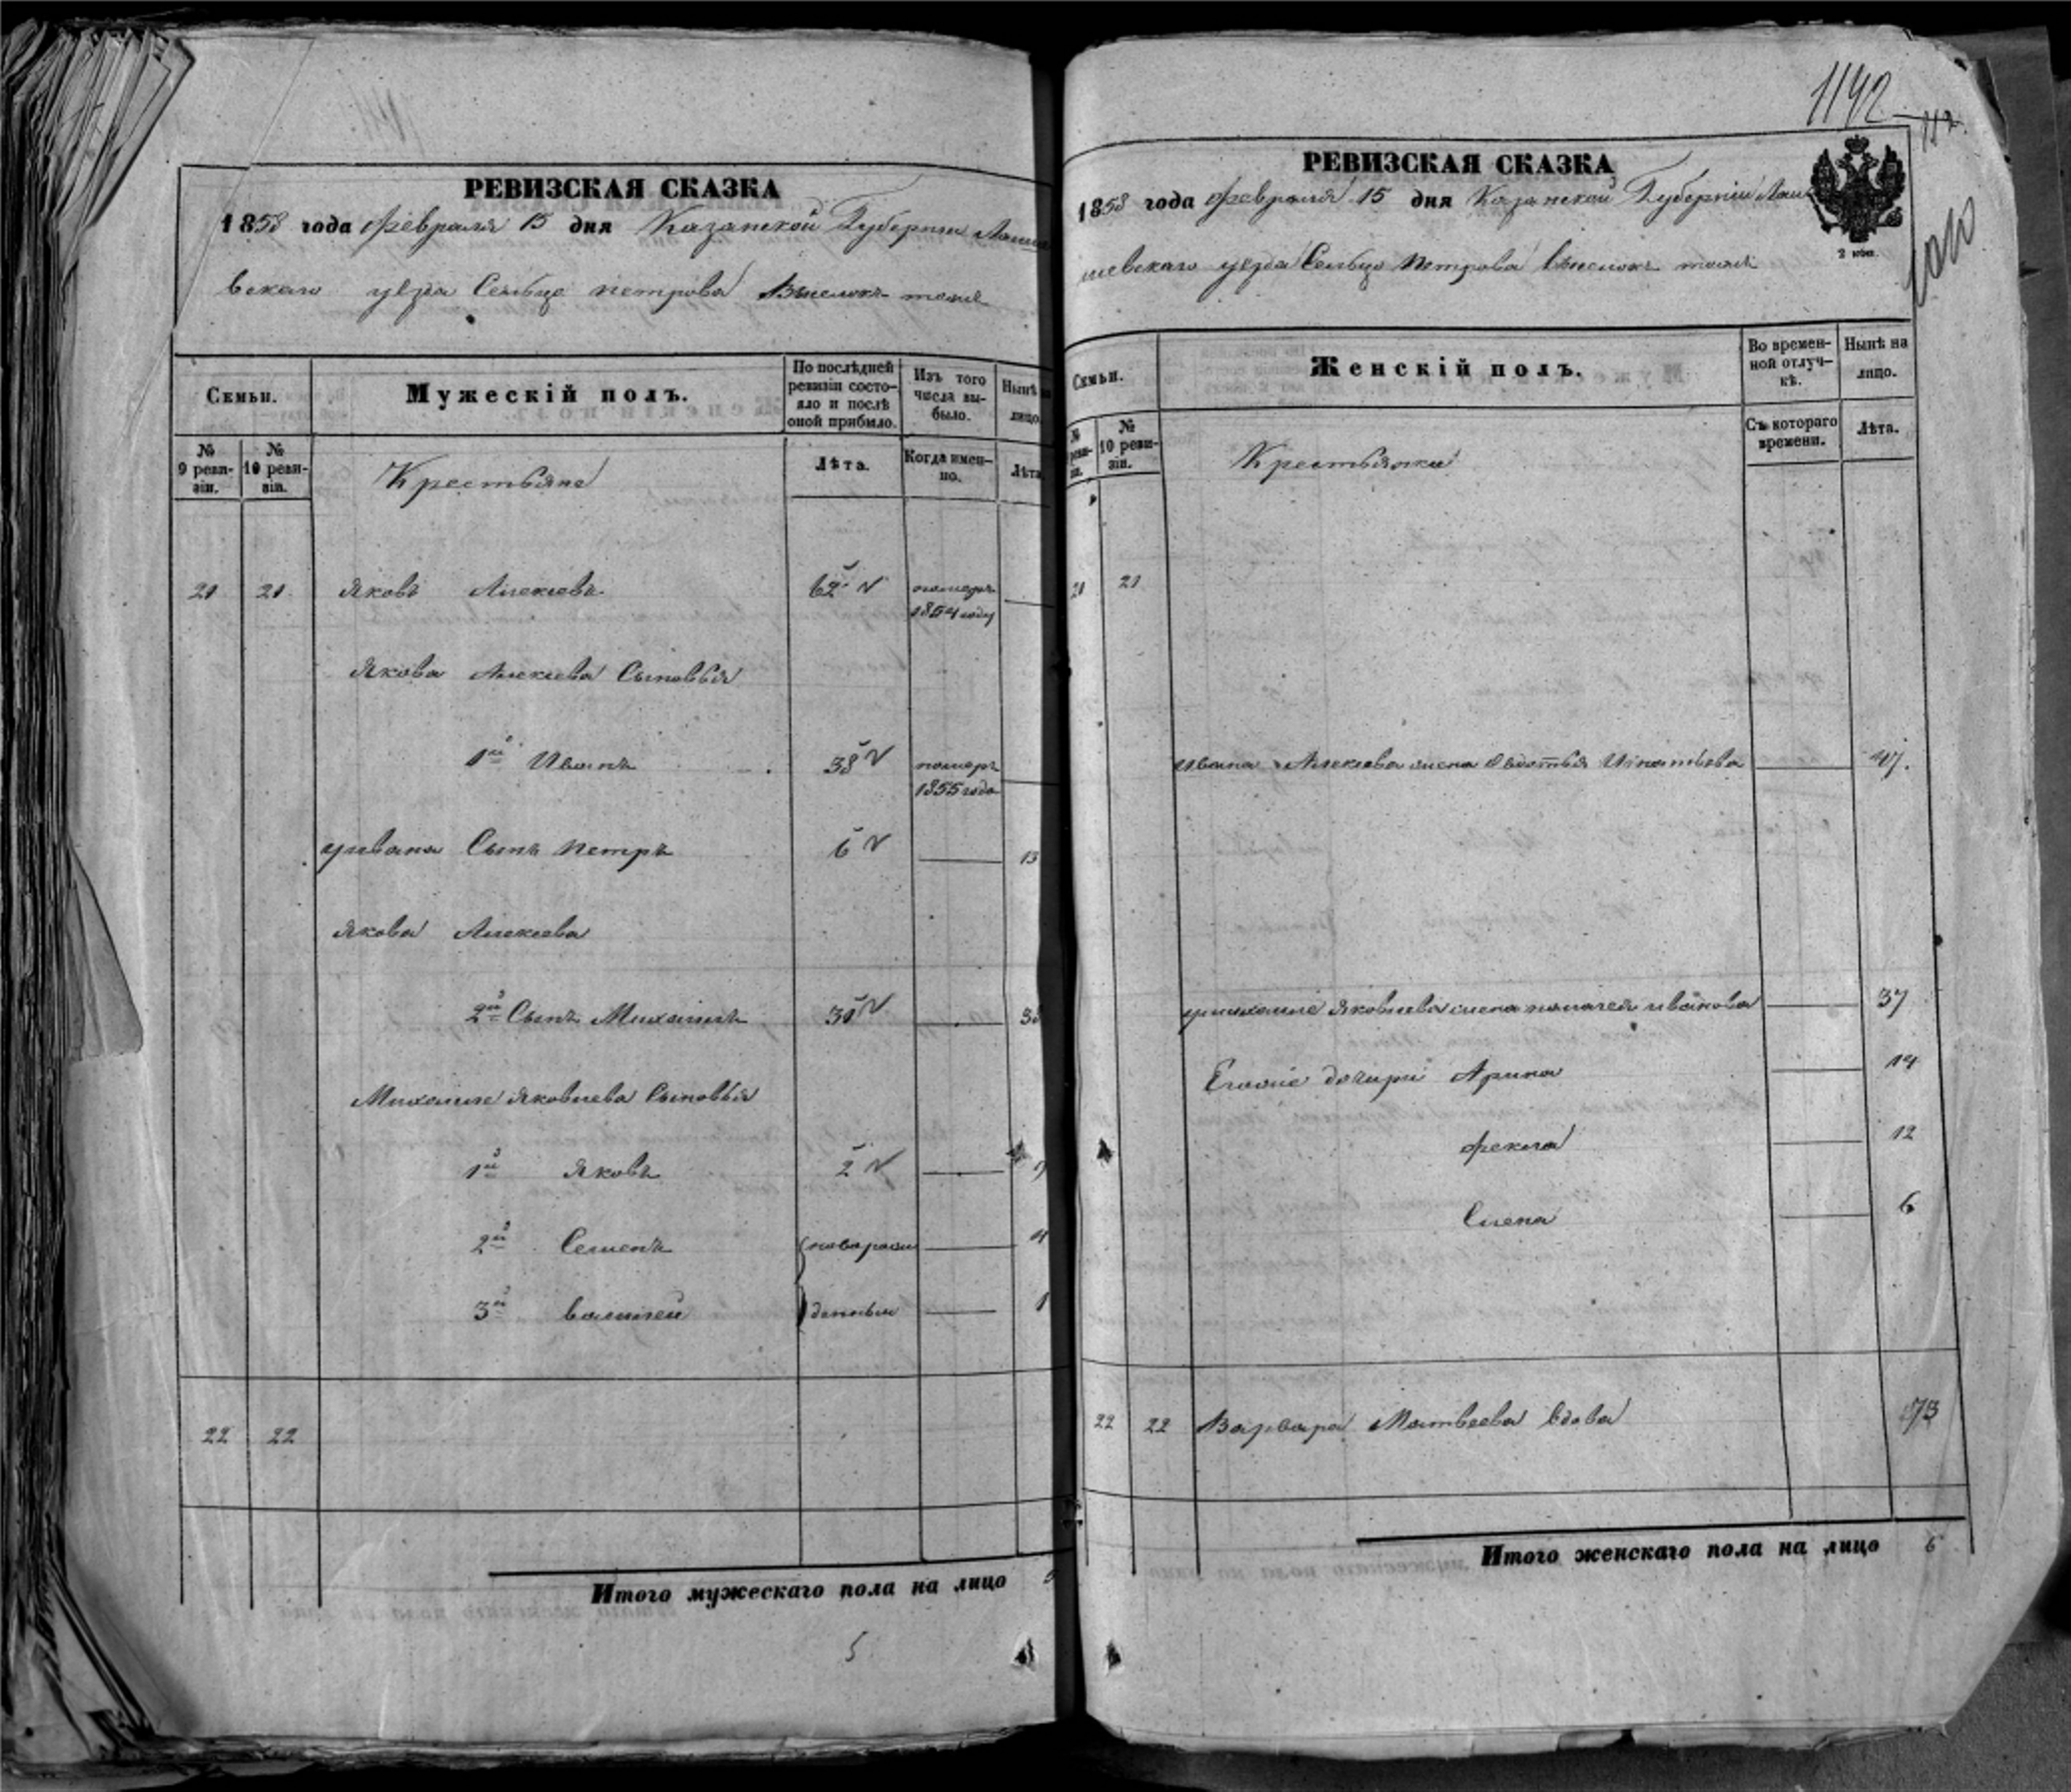 РЕВИЗСКАЯ СКАЗКА
1858 года Февраля 15 дня Казанской Губернии Лаише
вскаго уезда Сельцо петрова Выселокъ тожъ
Семьи.
Мужескій полъ.
По послѣдней ревизіи состояло и послѣ оной прибыло.
Изъ того числа выбыло.
Нынѣ на лицо.
№ 9 ревизіи.
№ 10 ревизіи.
Крестьяне
Лѣта.
Когда именно.
Лѣта
21 21 яковъ Алексеевъ 62 померъ 1854 году
якова Алексеева Сыновья
1й Иванъ 38 померъ 1855 года
уивана Сынъ петръ 6 13
якова Алексеева
2й Сынъ Михаилъ 30
Михаиле яковлева Сыновья
1й яковъ 2 9
2й Семенъ новорож 4
3й валилей денныи 1
22 22
Итого мужескаго пола на лицо 5
5
1142
РЕВИЗСКАЯ СКАЗКА
1858 года Февраля 15 дня Казанской Губерніи Лаи
шевскаго уезда Сельцо петрова выселокъ тожъ
2 коп.
Семьи.
Женскій полъ.
Во временной отлучкѣ.
Нынѣ на лицо.
№ 10 ревизіи.
Крестьянки
Съ котораго времени.
Лѣта.
21 21
ивана Алексеева жена Овдотья Игнатьева 47.
умихаиле яковлева жена палагея иванова 37
Егоже дочири Арина 14
Фекла 12
Елена 6
22 22 Варвара Матвеева вдова 73
Итого женскаго пола на лицо 6